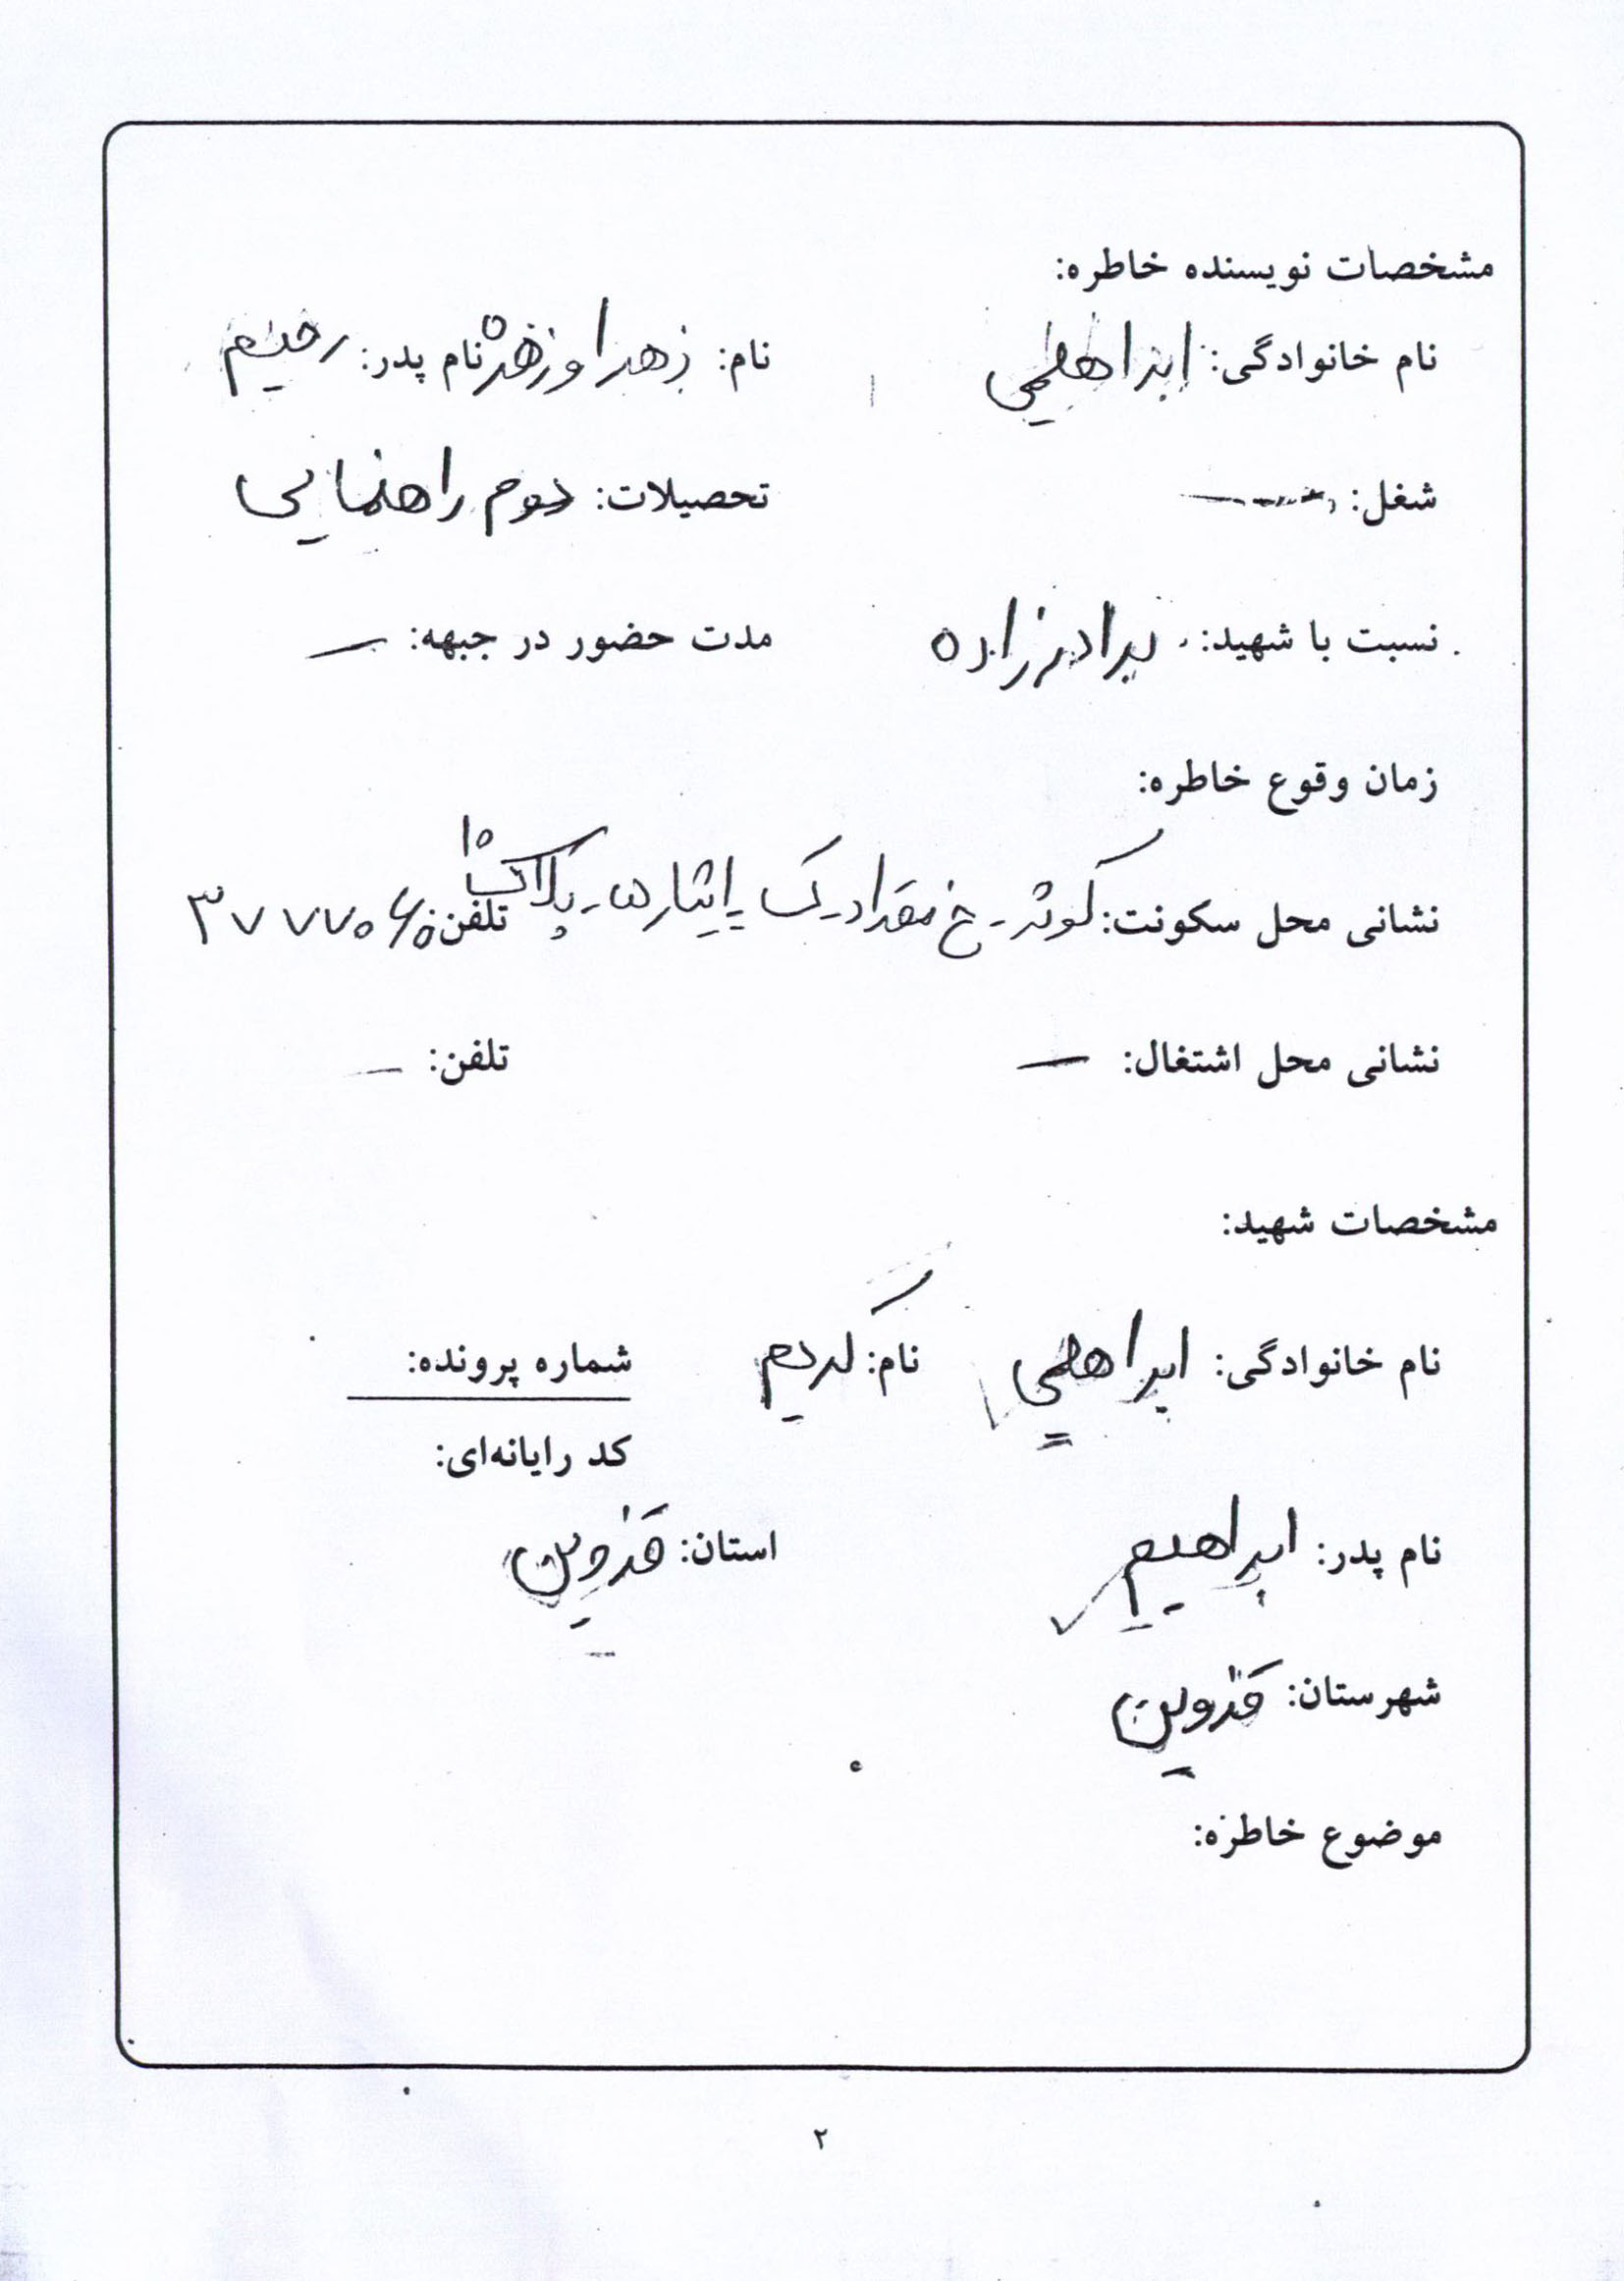 مشخصات نویسنده خاطره:
نام خانوادگی: ابراهیمی نام: زهرا و زهره نام پدر: رحیم
شغل: تحصیلات: دوم راهنمایی
نسبت با شهید: برادرزاده مدت حضور در جبهه: —
زمان وقوع خاطره:
نشانی محل سکونت: کوثر - خ مقداد یک - ایثار ۵ - پلاک ۱۵ تلفن: ۳۷۷۷۰
نشانی محل اشتغال: — تلفن: —
مشخصات شهید:
نام خانوادگی: ابراهیمی نام: کریم شماره پرونده:
کد رایانه‌ای:
نام پدر: ابراهیم استان: قزوین
شهرستان: قزوین
موضوع خاطره:
۲